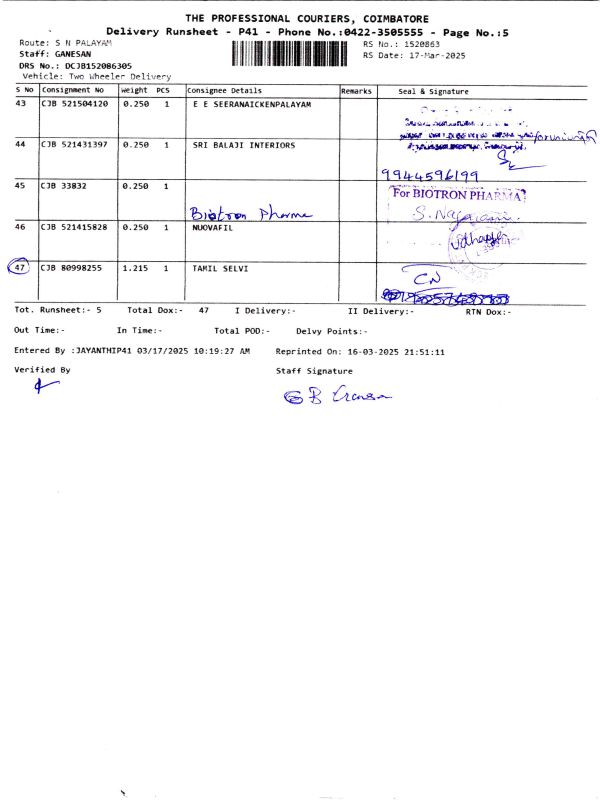 THE PROFESSIONAL COURIERS, COIMBATORE
Delivery Runsheet - P41 - Phone No.:0422-3505555 - Page No.:5
Route: S N PALAYAM
RS No.: 1520863
Staff: GANESAN
RS Date: 17-Mar-2025
DRS No.: DCJB152086305
Vehicle: Two Wheeler Delivery
S No Consignment No Weight PCS Consignee Details Remarks Seal & Signature
43 CJB 521504120 0.250 1 E E SEERANAICKENPALAYAM
44 CJB 521431397 0.250 1 SRI BALAJI INTERIORS
9944596199
45 CJB 33832 0.250 1 For BIOTRON PHARMA
Biotron Pharma
46 CJB 521415828 0.250 1 NUOVAFIL
47 CJB 80998255 1.215 1 TAMIL SELVI
Tot. Runsheet:- 5 Total Dox:- 47 I Delivery:- II Delivery:- RTN Dox:-
Out Time:- In Time:- Total POD:- Delvy Points:-
Entered By :JAYANTHIP41 03/17/2025 10:19:27 AM Reprinted On: 16-03-2025 21:51:11
Verified By Staff Signature